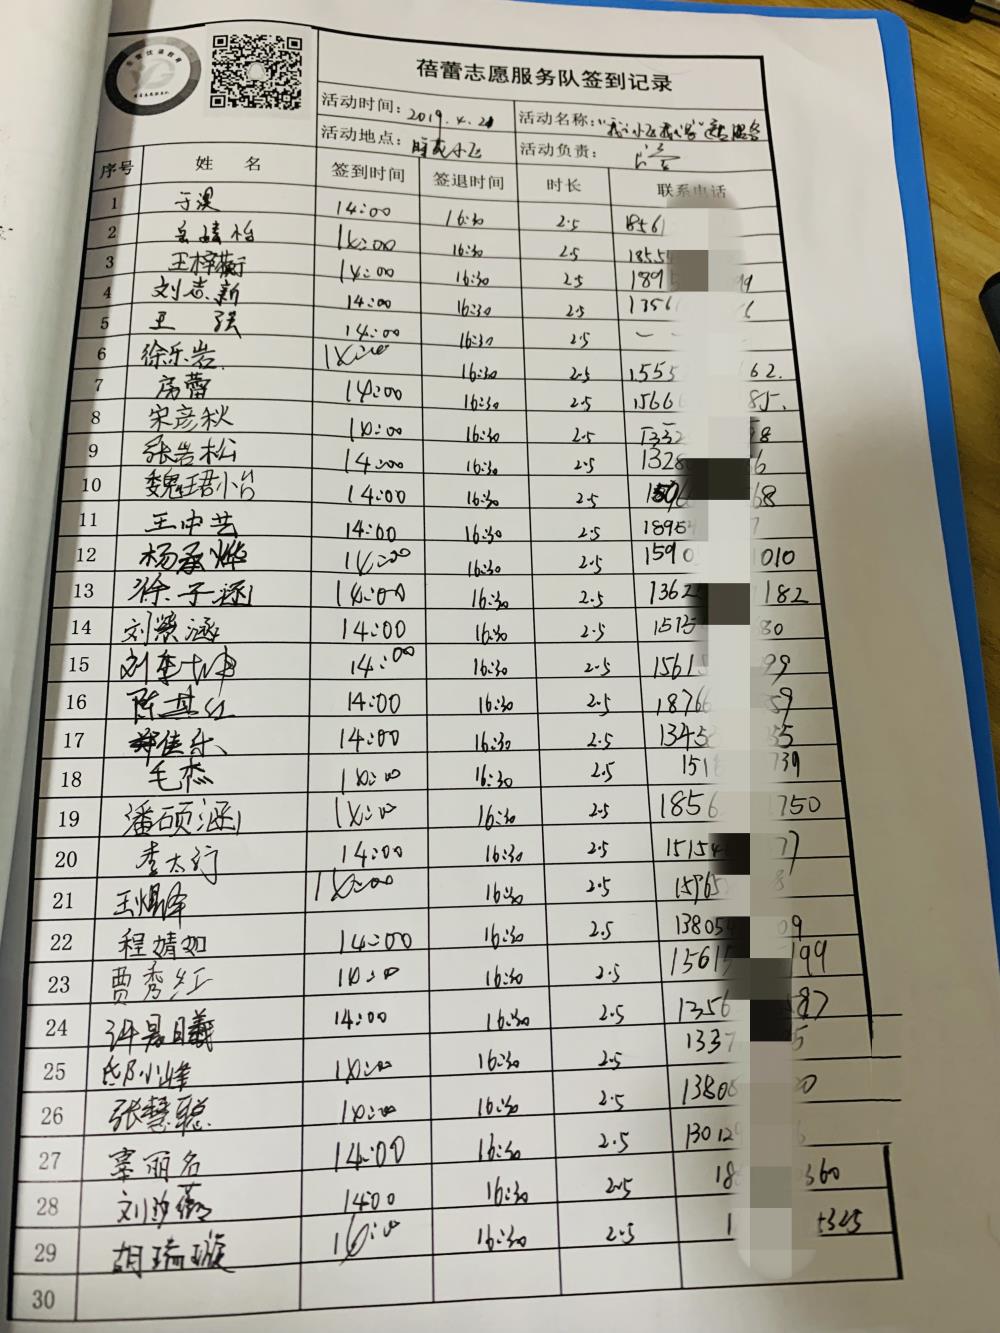 蓓蕾志愿服务队签到记录
活动时间：2019.4.21 活动名称：
活动地点： 活动负责：
序号 姓 名 签到时间 签退时间 时长 联系电话
1 于淏 14:00 16:30 2.5 1856
2 14:00 16:30 2.5 1855
3 王梓蘅 14:00 16:30 2.5 189 99
4 刘志新 14:00 16:30 2.5 1356 6
5 王 强 14:00 16:30 2.5
6 徐乐岩 14:00 16:30 2.5 1555 62.
7 房蕾 14:00 16:30 2.5 1566 85.
8 宋彦秋 14:00 16:30 2.5 1332 8
9 张岩松 14:00 16:30 2.5 1328 6
10 魏珺怡 14:00 16:30 2.5 68
11 王中艺 14:00 16:30 2.5 1895 7
12 杨承烨 14:00 16:30 2.5 1590 1010
13 徐子涵 14:00 16:30 2.5 1362 182
14 刘紫涵 14:00 16:30 2.5 1515 80
15 14:00 16:30 2.5 1561 99
16 陈其红 14:00 16:30 2.5 18766 59
17 郑佳乐 14:00 16:30 2.5 1345 55
18 毛杰 14:00 16:30 2.5 151 739
19 潘硕涵 14:00 16:30 2.5 1856 1750
20 李太行 14:00 16:30 2.5 15154 77
21 王煜泽 14:00 16:30 2.5 15965 8
22 程婧如 14:00 16:30 2.5 13805 09
23 贾秀红 14:00 16:30 2.5 1561 199
24 许晨曦 14:00 16:30 2.5 1356 587
25 邸小峰 14:00 16:30 2.5 1337 5
26 张慧聪 14:00 16:30 2.5 1380 0
27 辜丽名 14:00 16:30 2.5 13012 6
28 14:00 16:30 2.5 18 360
29 胡瑞璇 14:00 16:30 2.5 1 325
30